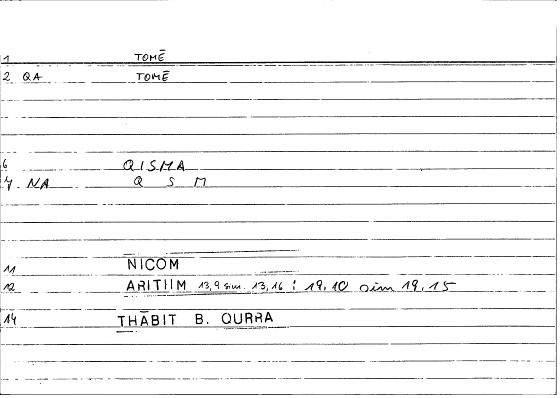 1 TOMĒ
2 QA TOMĒ
6 QISMA
7 NA Q S M
11 NICOM
12 ARITIIM 13,9 sim. 13,16 ; 19,10 sim 19,15
14 THĀBIT B. QURRA